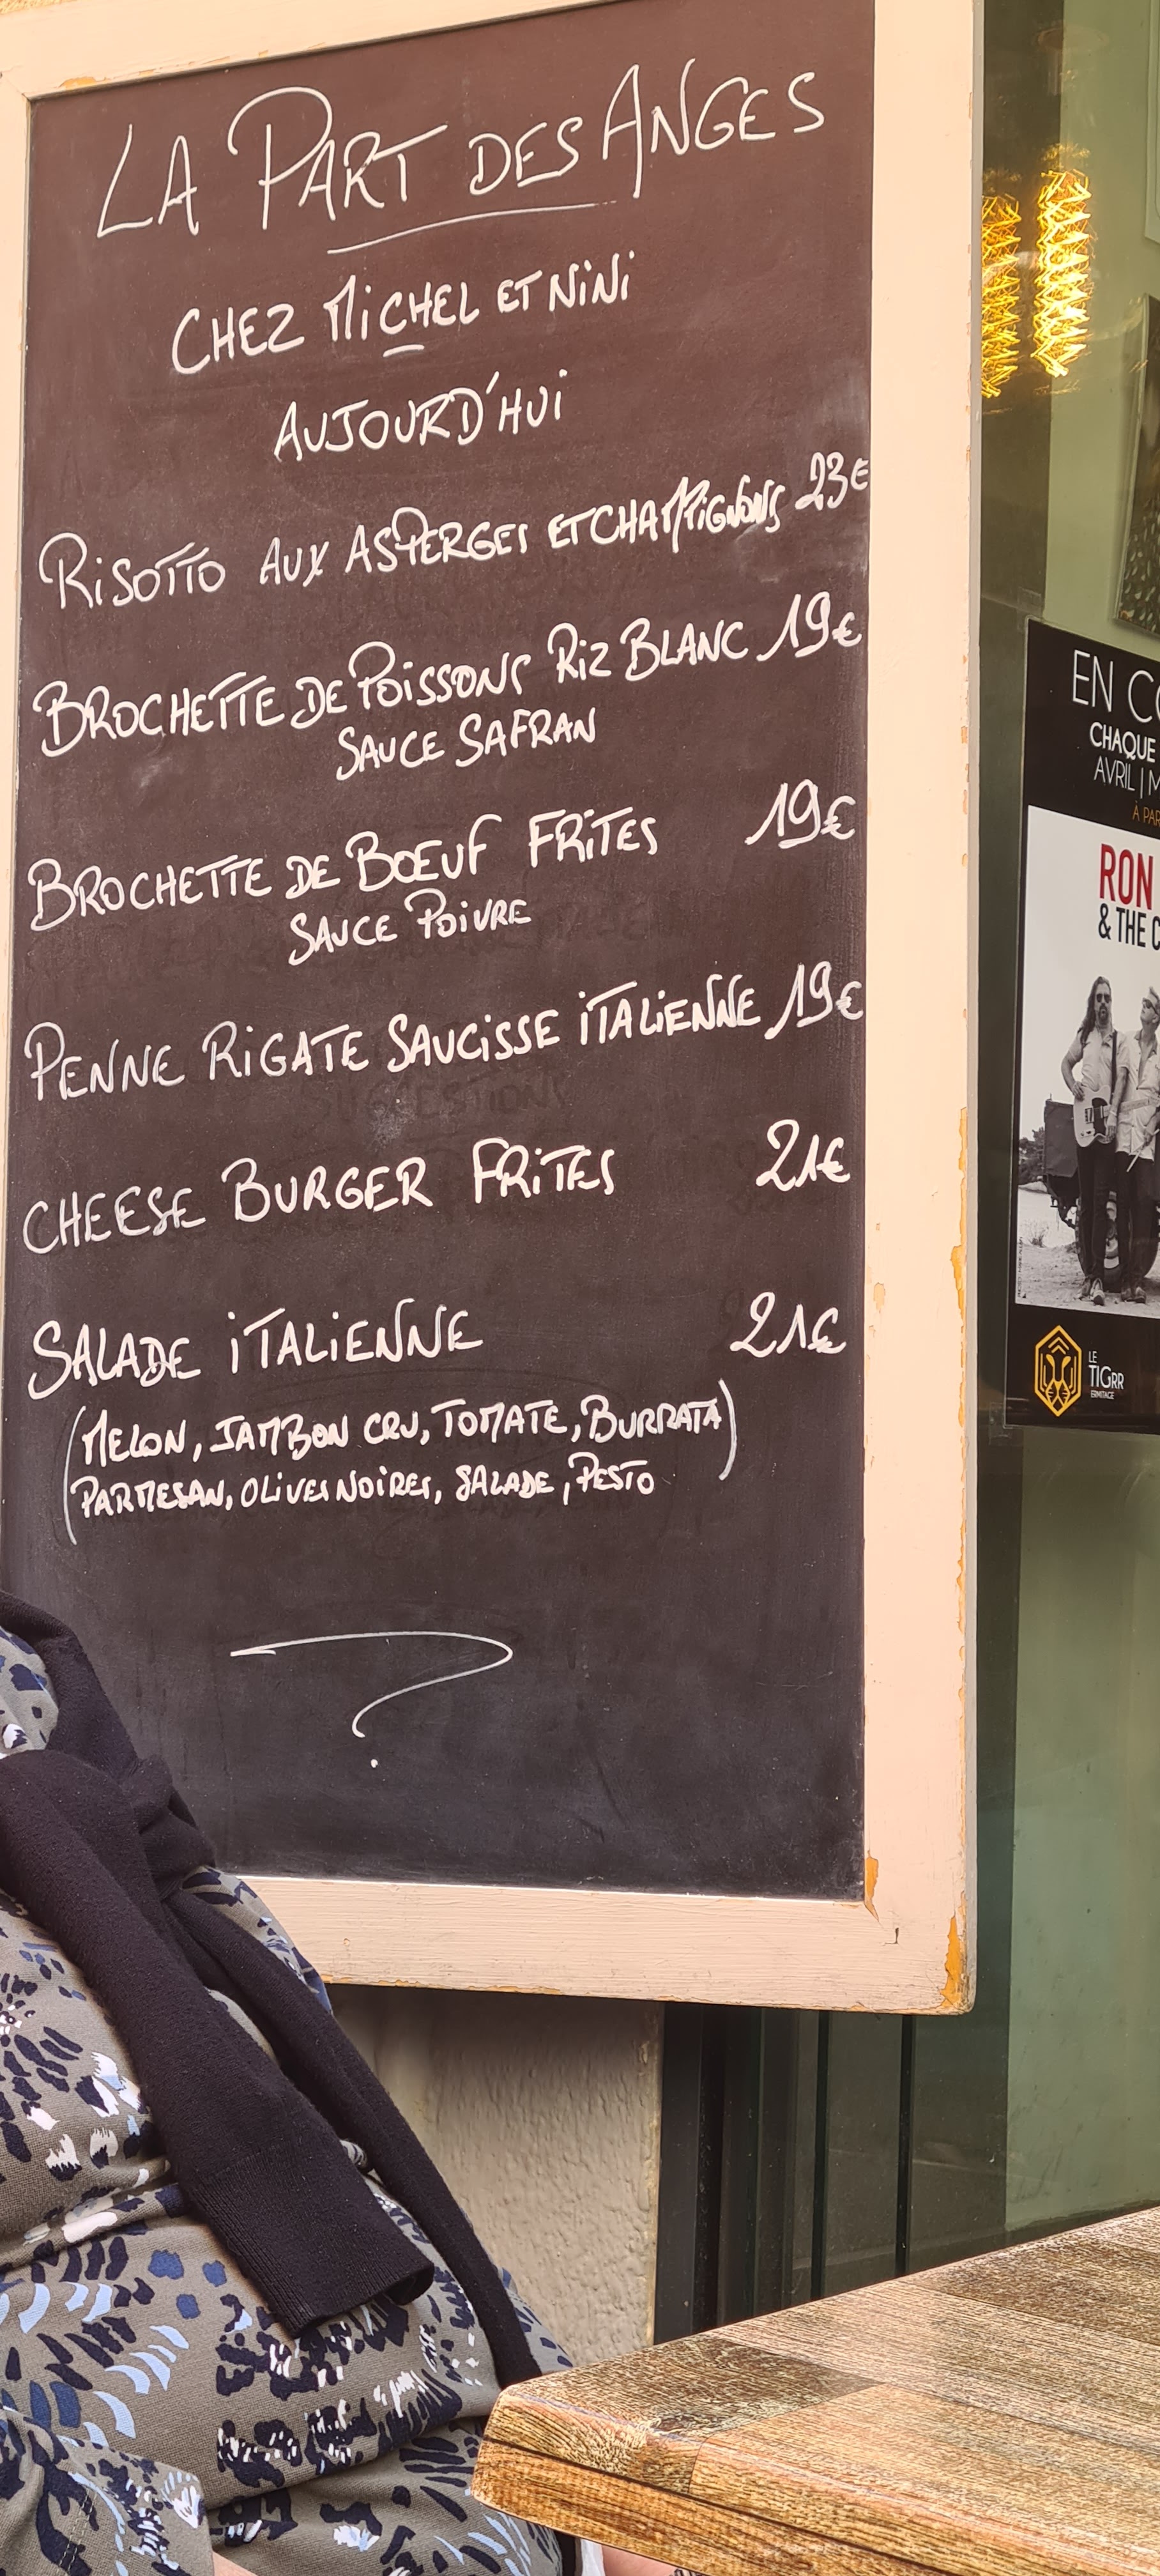 LA PART DES ANGES
CHEZ MICHEL ET NINI
AUJOURD'HUI
RISOTTO AUX ASPERGES ET CHAMPIGNONS 23€
BROCHETTE DE POISSONS RIZ BLANC 19€
SAUCE SAFRAN
BROCHETTE DE BŒUF FRITES 19€
SAUCE POIVRE
PENNE RIGATE SAUCISSE ITALIENNE 19€
CHEESE BURGER FRITES 21€
SALADE ITALIENNE 21€
(MELON, JAMBON CRU, TOMATE, BURRATA
PARMESAN, OLIVES NOIRES, SALADE, PESTO)
?
EN CO
CHAQUE
AVRIL | M
À PAR
RON
& THE C
LE
TIGRR
ERMITAGE